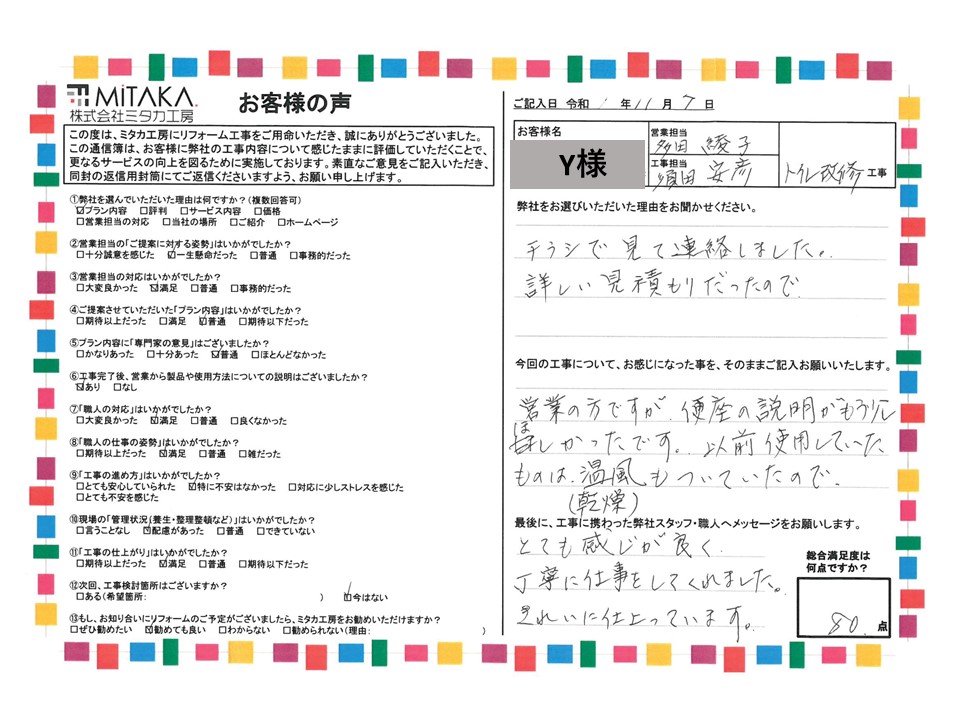 MiTAKA
株式会社ミタカ工房
お客様の声
この度は、ミタカ工房にリフォーム工事をご用命いただき、誠にありがとうございました。
この通信簿は、お客様に弊社の工事内容について感じたままに評価していただくことで、
更なるサービスの向上を図るために実施しております。素直なご意見をご記入いただき、
同封の返信用封筒にてご返信くださいますよう、お願い申し上げます。
①弊社を選んでいただいた理由は何ですか？(複数回答可)
☑プラン内容 □評判 □サービス内容 □価格
□営業担当の対応 □当社の場所 □ご紹介 □ホームページ
②営業担当の「ご提案に対する姿勢」はいかがでしたか？
□十分誠意を感じた ☑一生懸命だった □普通 □事務的だった
③営業担当の対応はいかがでしたか？
□大変良かった ☑満足 □普通 □事務的だった
④ご提案させていただいた「プラン内容」はいかがでしたか？
□期待以上だった □満足 ☑普通 □期待以下だった
⑤プラン内容に「専門家の意見」はございましたか？
□かなりあった □十分あった ☑普通 □ほとんどなかった
⑥工事完了後、営業から製品や使用方法についての説明はございましたか？
☑あり □なし
⑦「職人の対応」はいかがでしたか？
□大変良かった ☑満足 □普通 □良くなかった
⑧「職人の仕事の姿勢」はいかがでしたか？
□期待以上だった ☑満足 □普通 □雑だった
⑨「工事の進め方」はいかがでしたか？
□とても安心していられた ☑特に不安はなかった □対応に少しストレスを感じた
□とても不安を感じた
⑩現場の「管理状況(養生・整理整頓など)」はいかがでしたか？
□言うことなし ☑配慮があった □普通 □できていない
⑪「工事の仕上がり」はいかがでしたか？
□期待以上だった ☑満足 □普通 □期待以下だった
⑫次回、工事検討箇所はございますか？
□ある(希望箇所: ) ☑今はない
⑬もし、お知り合いにリフォームのご予定がございましたら、ミタカ工房をお勧めいただけますか？
□ぜひ勧めたい ☑勧めても良い □わからない □勧められない(理由: )
ご記入日 令和 1 年 11 月 7 日
お客様名
Y様
営業担当
多田 綾子
工事担当
須田 安彦
トイレ改修 工事
弊社をお選びいただいた理由をお聞かせください。
チラシで見て連絡しました。
詳しい見積もりだったので
今回の工事について、お感じになった事を、そのままご記入お願いいたします。
営業の方ですが、便座の説明がもう少し
ほしかったです。以前使用していた
ものは、温風もついていたので。
(乾燥)
最後に、工事に携わった弊社スタッフ・職人へメッセージをお願いします。
とても感じが良く
丁寧に仕事をしてくれました。
きれいに仕上っています。
総合満足度は
何点ですか？
80. 点